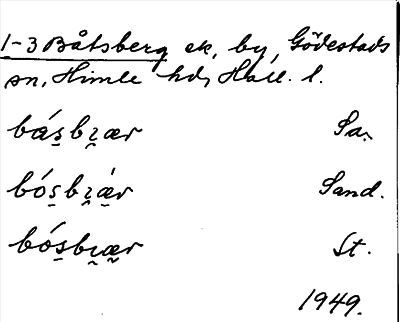 1-3 Båtsberg ek, by, Gödestads
sn, Himle hd, Hall. l.
bás̱bɀ̠ær Sa.
bós̱bɀ̠ǽr Sand.
bós̱bɀ̠ær St.
1949.